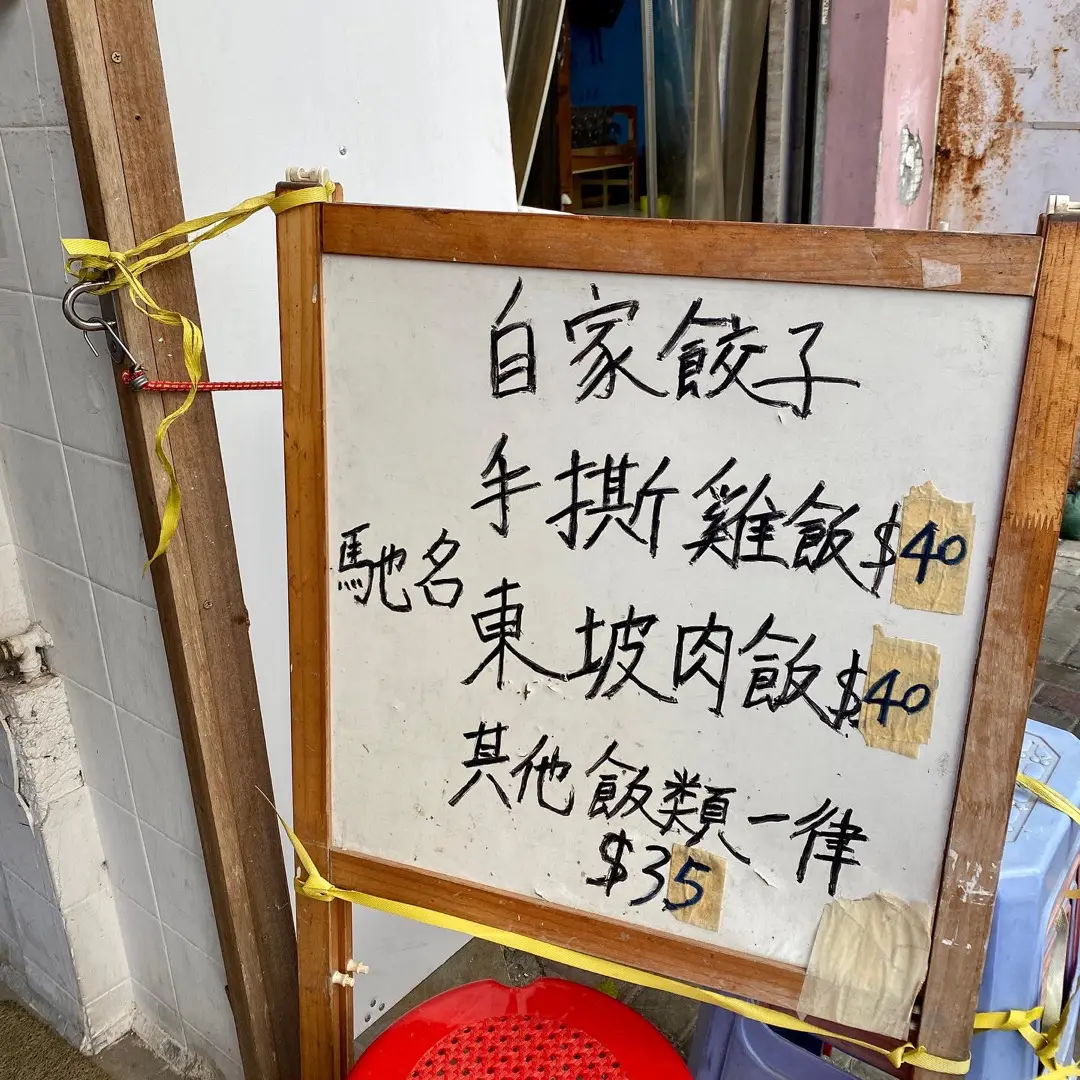 自家餃子
手撕雞飯$40
馳名
東坡肉飯$40
其他飯類一律
$35